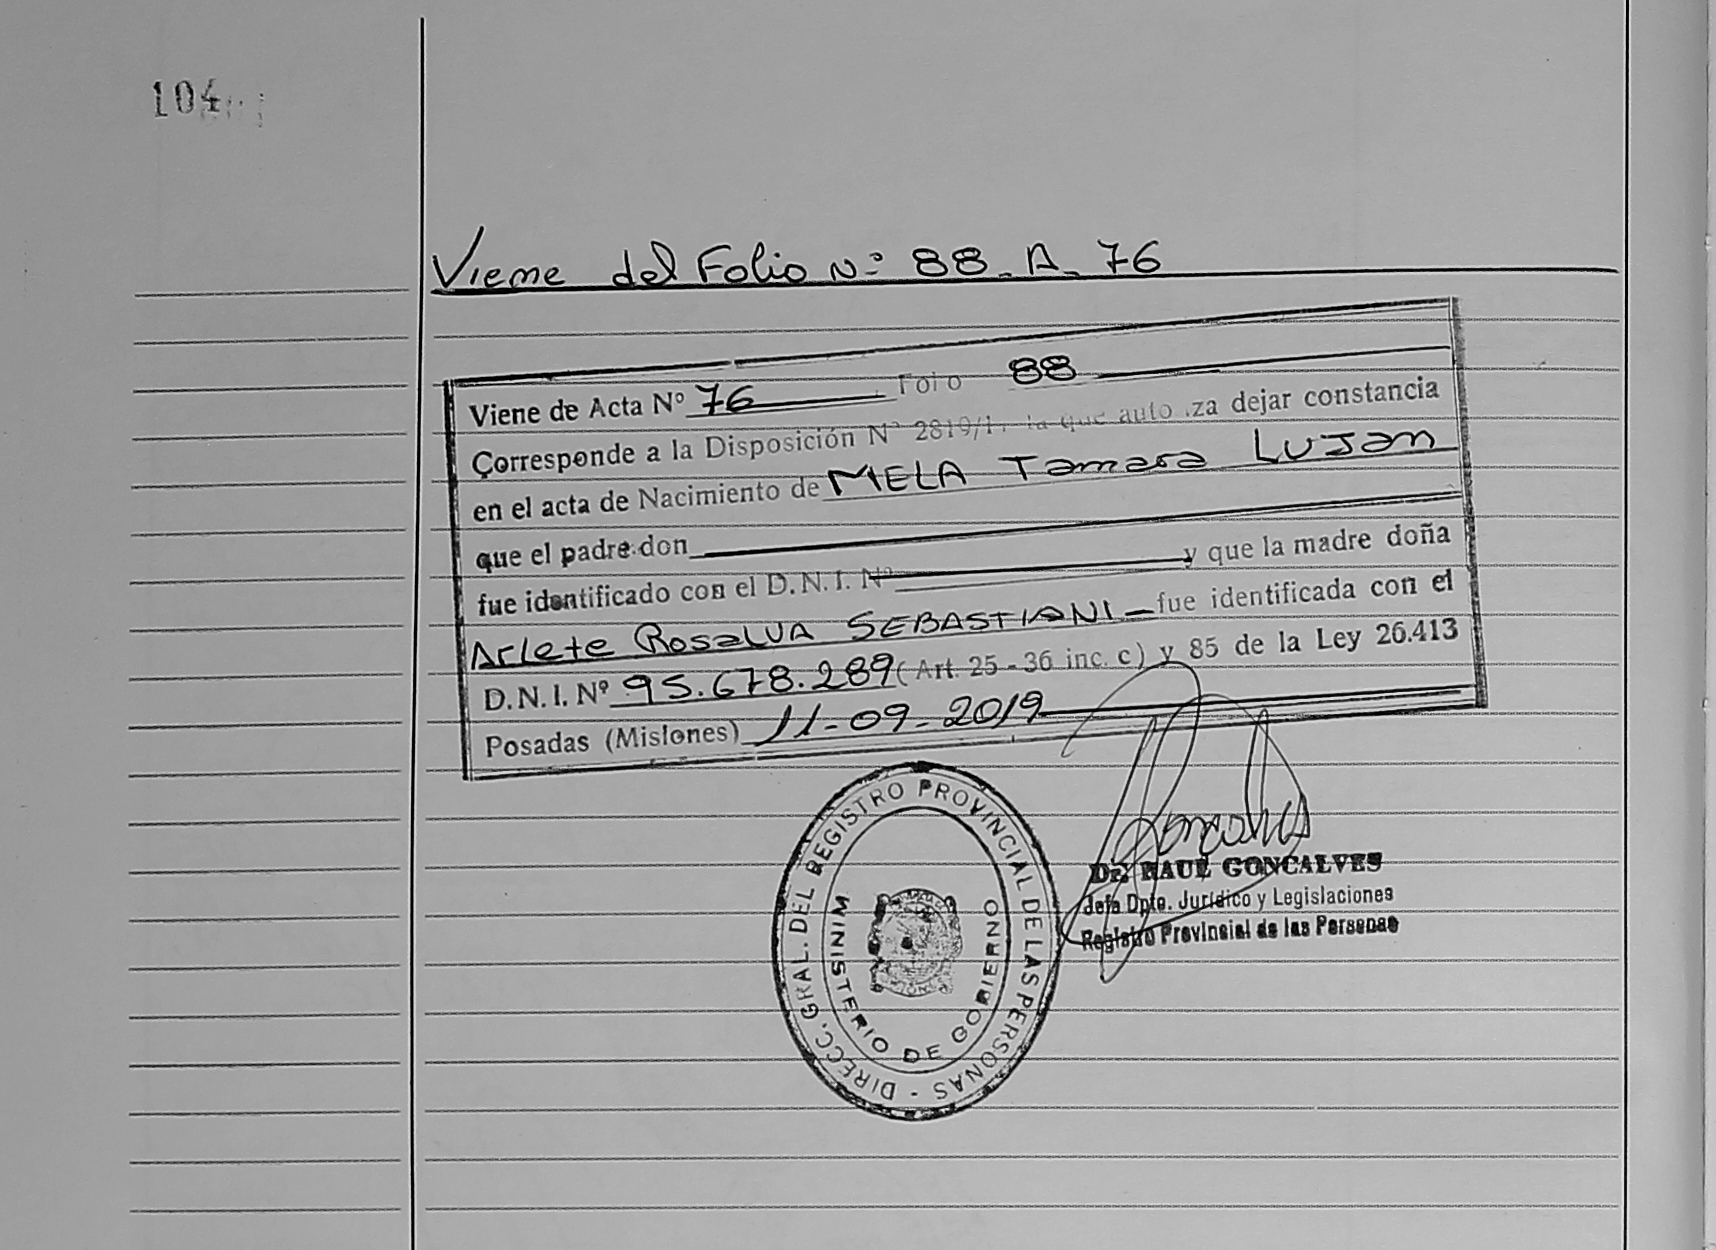 104
Viene del Folio Nº 88-A-76
Viene de Acta Nº 76 Folio 88
Corresponde a la Disposición Nº 2819/1 la que auto iza dejar constancia
en el acta de Nacimiento de MELA Tamara LUJan
que el padre don
fue identificado con el D.N.I. Nº y que la madre doña
Arlete RosaLVA SEBASTIANI - fue identificada con el
D.N.I. Nº 95.678.289 (Art. 25 - 36 inc. c) y 85 de la Ley 26.413
Posadas (Misiones) 11-09-2019
DIRECC. GRAL. DEL REGISTRO PROVINCIAL DE LAS PERSONAS -
MINISTERIO DE GOBIERNO
Goncalves
Dr. RAUL GONCALVES
Jefe Dpto. Jurídico y Legislaciones
Registro Provincial de las Personas